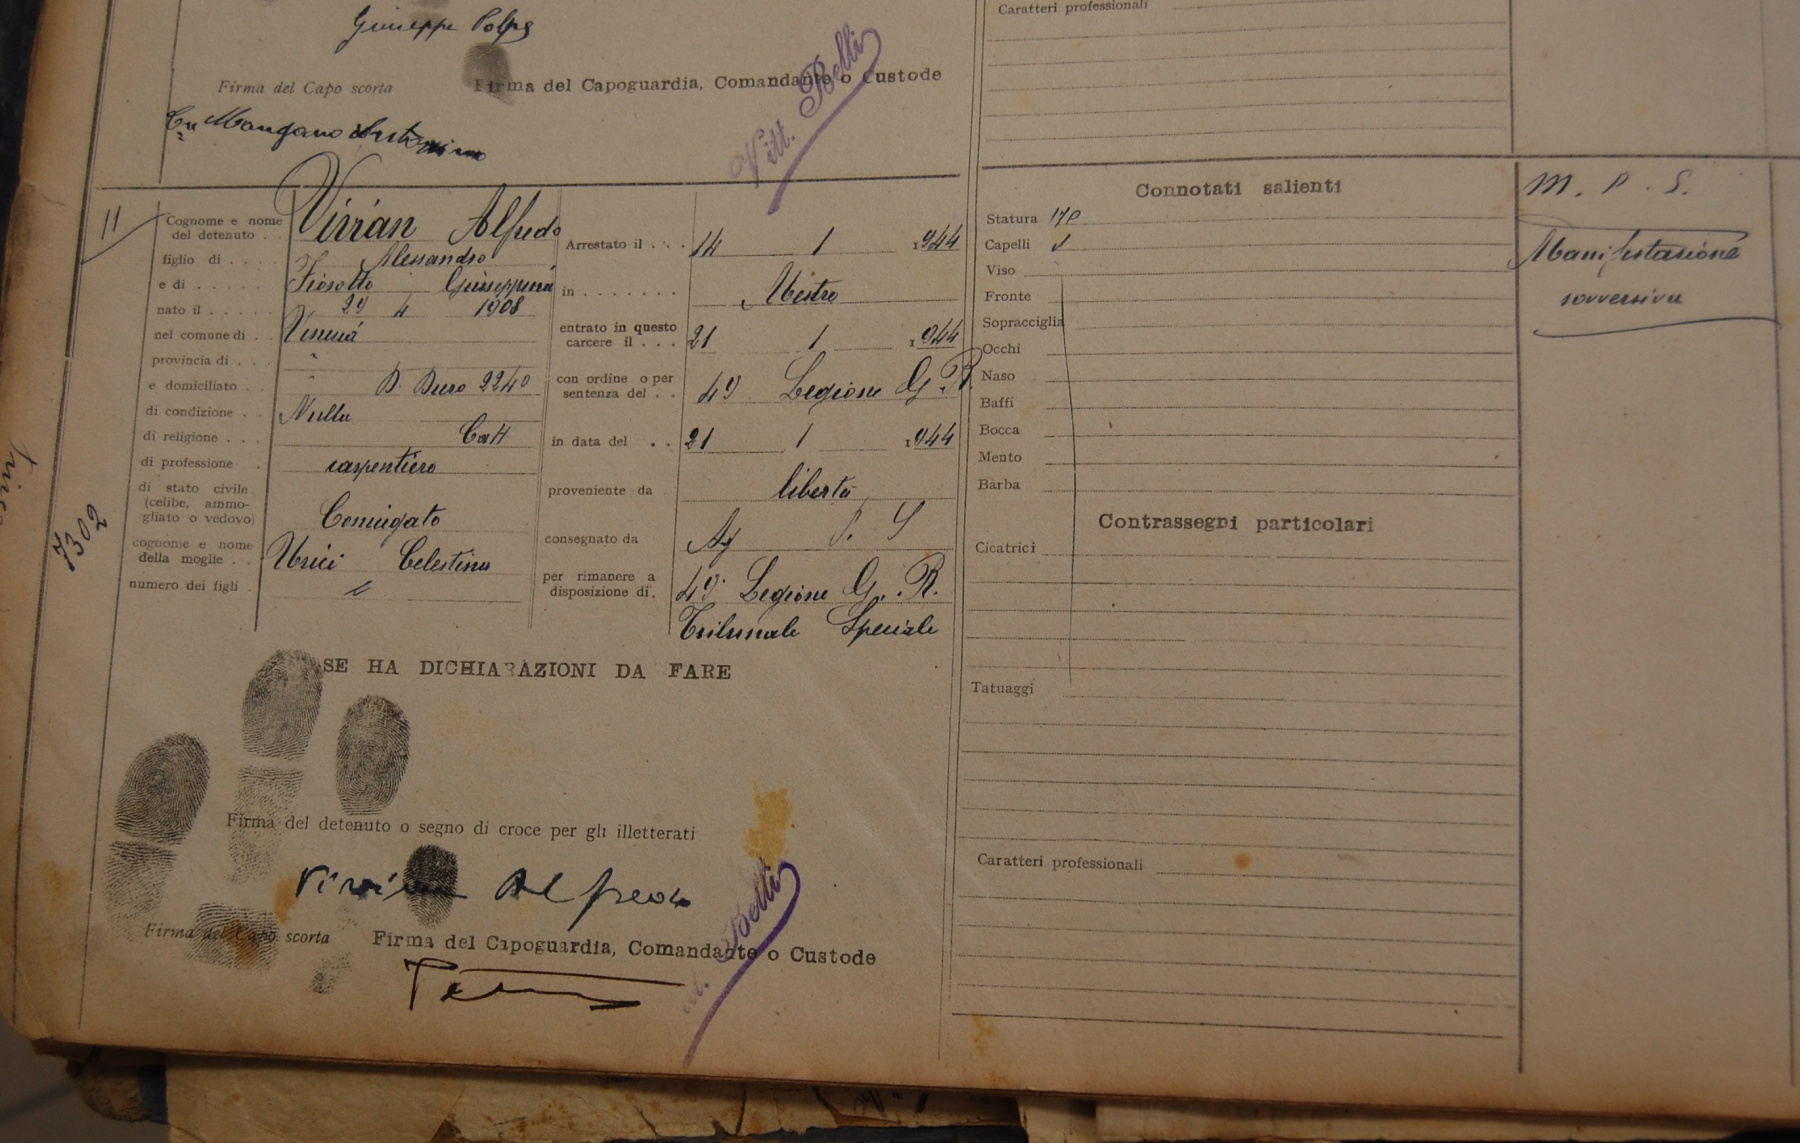 Giuseppe
Firma del Capo scorta
Firma del Capoguardia, Comandante o Custode
Mangano
Vitt. Belli
Caratteri professionali
11
7302
Cognome e nome del detenuto . . Vivian Alfredo
figlio di . . . . Alessandro
e di . . . . . . Giuseppina
nato il . . . . . 29 4 1908
nel comune di . . Venezia
provincia di . . . "
e domiciliato . . " D. Duro 2240
di condizione . . Nulla
di religione . . . Catt.
di professione . carpentiere
di stato civile
(celibe, ammo-
gliato o vedovo) Coniugato
cognome e nome
della moglie . . Celestina
numero dei figli
Arrestato il . . . . 14 1 1944
in . . . . . . . Mestre
entrato in questo
carcere il . . . 21 1 1944
con ordine o per
sentenza del . . 49 Legione G. R.
in data del . . 21 1 1944
proveniente da libertà
consegnato da Ag P. S
per rimanere a
disposizione di. 49 Legione G. R.
Tribunale Speciale
SE HA DICHIARAZIONI DA FARE
Firma del detenuto o segno di croce per gli illetterati
Vivian Alfredo
Firma del Capo scorta
Firma del Capoguardia, Comandante o Custode
Vitt. Belli
Connotati salienti
Statura 170
Capelli
Viso
Fronte
Sopracciglia
Occhi
Naso
Baffi
Bocca
Mento
Barba
Contrassegni particolari
Cicatrici
Tatuaggi
Caratteri professionali
M. P. S.
Manifestazione
sovversiva